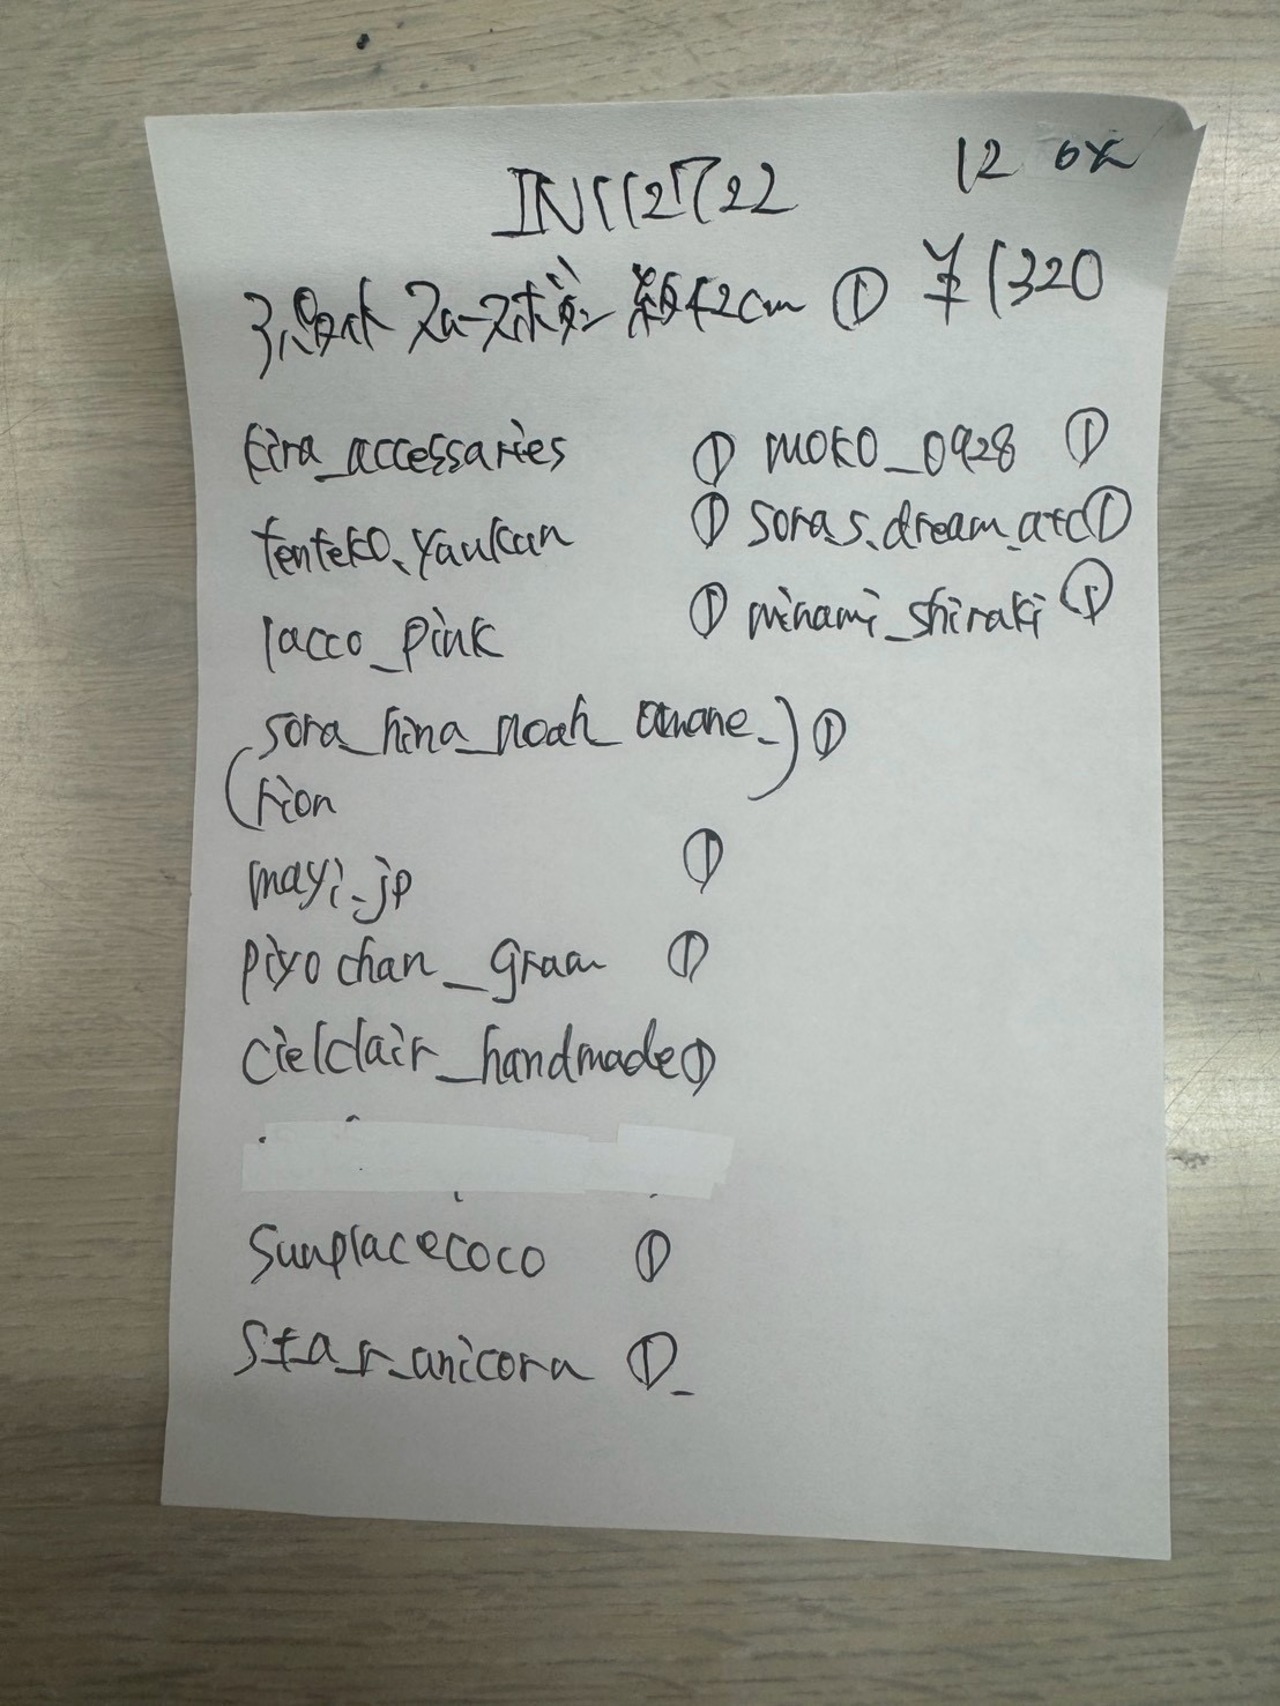 INT12722 12
42cm ① ¥1320
kira_accessaries ① moko_0928 ①
tenteko.yaukan ① sora.s.dream_arc ①
lacco_pink ① minami_shiraki ①
(sora_hina_noah_amane_
rion) ①
mayi.jp ①
piyochan_gram ①
cielclair_handmade ①
sunplacecoco ①
star_anicora ①